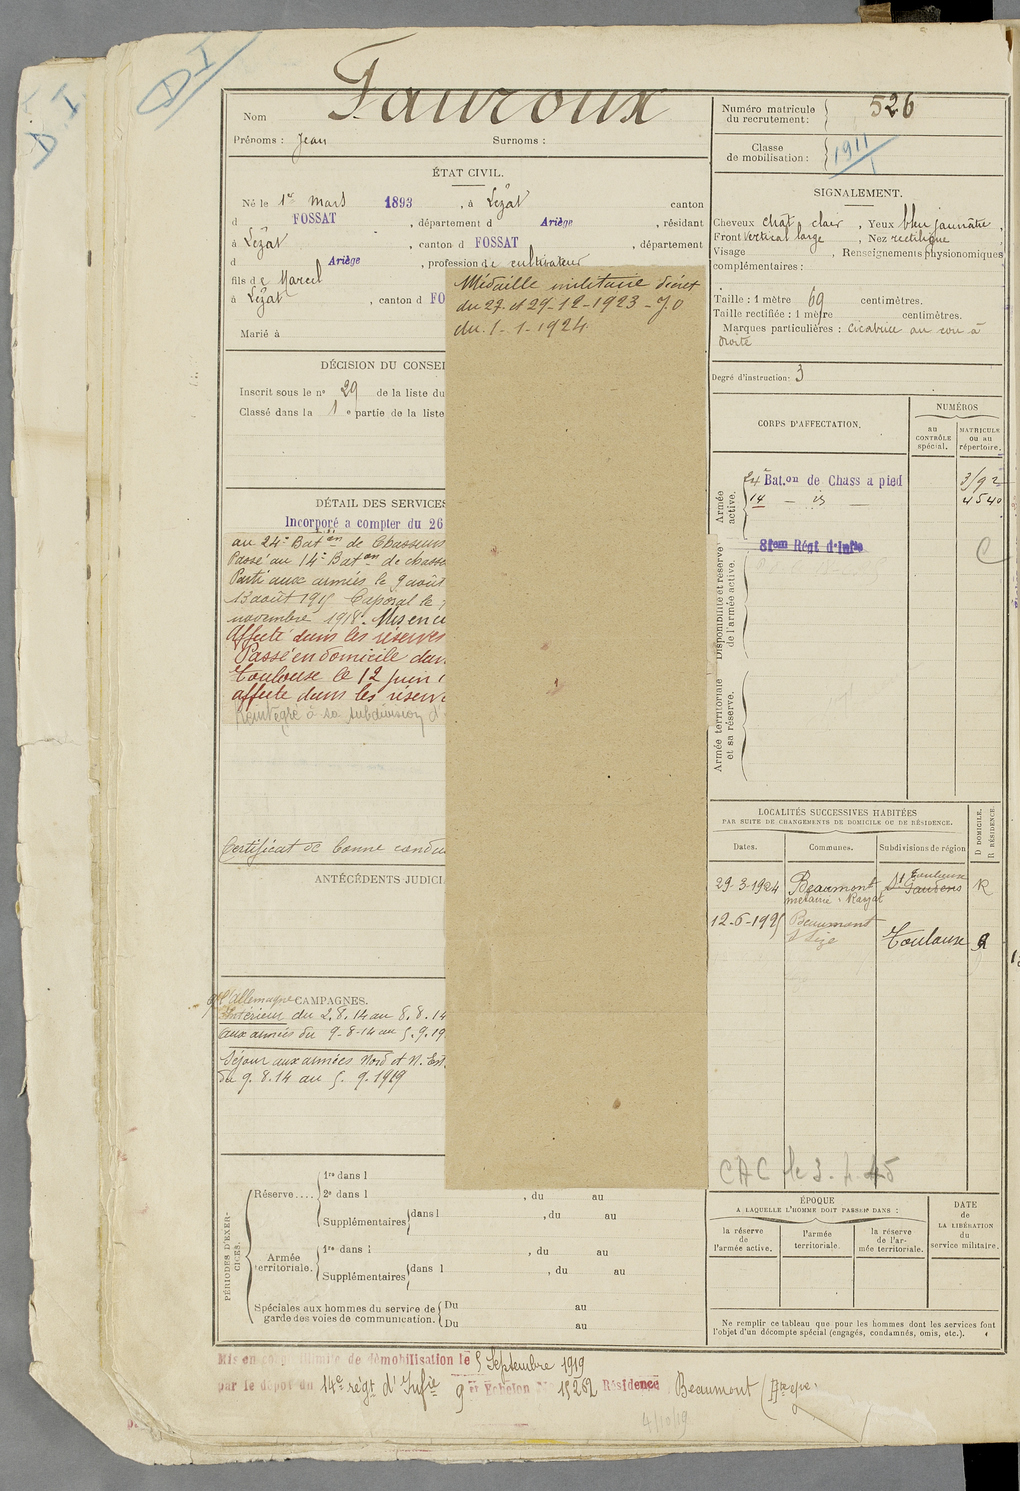 D.I
DI
Nom Fauroux
Prénoms : Jean Surnoms :
Numéro matricule du recrutement : 526
Classe de mobilisation : 1911
ÉTAT CIVIL.
Né le 1er mars 1893, à Lézat canton
d FOSSAT, département d Ariège, résidant
à Lézat, canton d FOSSAT, département
d Ariège, profession de cultivateur
fils de Marcel
à Lézat, canton d FO
Marié à
Médaille militaire décret
du 27 et 29-12-1923 - J.O
du 1-1-1924.
DÉCISION DU CONSE
Inscrit sous le no 29 de la liste du
Classé dans la 1e partie de la liste
DÉTAIL DES SERVICES
Incorporé a compter du 26
au 24e Batan de Chasseurs
Passé au 14e Batan de chasse
Parti aux armées le 9 août
13 août 1915 Caporal le
novembre 1918. Mis en c
Affecté dans les réserves
Passé en domicile dan
Toulouse le 12 juin
affecté dans les réserve
Réintégré à sa subdivision d
Certificat de bonne condu
ANTÉCÉDENTS JUDICI
CAMPAGNES.
l'Allemagne
Intérieur du 2.8.14 au 8.8.14
aux armées du 9-8-14 au 5.9.19
Séjour aux armées Nord et N. Est
du 9.8.14 au 5.9.1919
PÉRIODES D'EXERCICES.
Réserve....
1re dans l
2e dans l , du au
Supplémentaires dans l , du au
Armée territoriale.
1re dans l , du au
Supplémentaires dans l , du au
Spéciales aux hommes du service de garde des voies de communication.
Du au
Du au
SIGNALEMENT.
Cheveux chât clair, Yeux bleu jaunâtre,
Front vertical large, Nez rectiligne,
Visage , Renseignements physionomiques
complémentaires :
Taille : 1 mètre 69 centimètres.
Taille rectifiée : 1 mètre centimètres.
Marques particulières : cicatrice au cou à
droite
Degré d'instruction : 3
CORPS D'AFFECTATION.
NUMÉROS
au contrôle spécial.
matricule ou au répertoire.
Armée active.
24e Bat.on de Chass a pied
14 - is - 4540
Disponibilité et réserve de l'armée active.
81eme Régt d'Infie
C
Armée territoriale et sa réserve.
LOCALITÉS SUCCESSIVES HABITÉES
PAR SUITE DE CHANGEMENTS DE DOMICILE OU DE RÉSIDENCE.
D DOMICILE.
R RÉSIDENCE
Dates. Communes. Subdivisions de région
29-3-1924 Beaumont St Gaudens Toulouse R
métairie
12-6-192 Beaumont Toulouse R
s Lèze
CAC le 3. 4. 45
ÉPOQUE
A LAQUELLE L'HOMME DOIT PASSER DANS :
la réserve de l'armée active.
l'armée territoriale.
la réserve de l'armée territoriale.
DATE de LA LIBÉRATION du service militaire.
Ne remplir ce tableau que pour les hommes dont les services font
l'objet d'un décompte spécial (engagés, condamnés, omis, etc.).
Mis en congé illimité de démobilisation le 5 Septembre 1919
par le dépôt du 14e régt d'Infie 9e Echelon No 15262 Résidence Beaumont
4/10/19